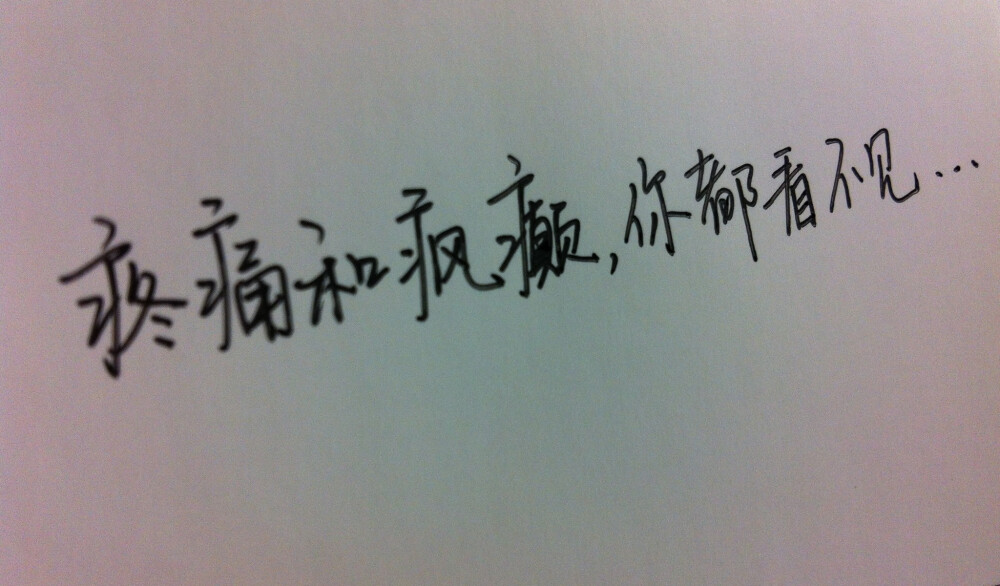 疼痛和疯癫,你都看不见...